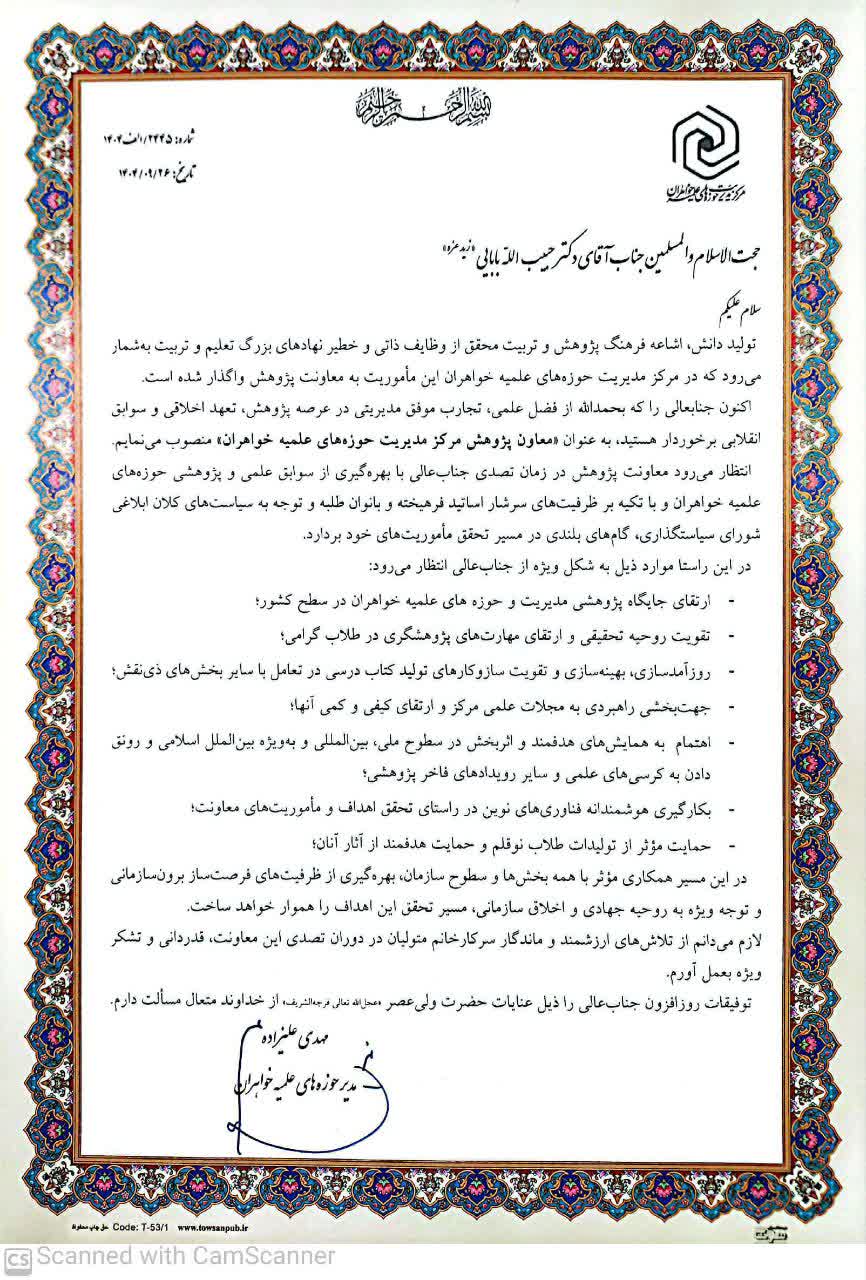 بسم الله الرحمن الرحیم
مرکز مدیریت حوزه‌های علمیه خواهران
شماره: ۲۴۴۵/الف/۱۴۰۴
تاریخ: ۱۴۰۴/۰۹/۲۶
حجت الاسلام والمسلمین جناب آقای دکتر حبیب الله بابایی «زید عزه»
سلام علیکم
تولید دانش، اشاعه فرهنگ پژوهش و تربیت محقق از وظایف ذاتی و خطیر نهادهای بزرگ تعلیم و تربیت به‌شمار
می‌رود که در مرکز مدیریت حوزه‌های علمیه خواهران این مأموریت به معاونت پژوهش واگذار شده است.
اکنون جنابعالی را که بحمدالله از فضل علمی، تجارب موفق مدیریتی در عرصه پژوهش، تعهد اخلاقی و سوابق
انقلابی برخوردار هستید، به عنوان «معاون پژوهش مرکز مدیریت حوزه‌های علمیه خواهران» منصوب می‌نمایم.
انتظار می‌رود معاونت پژوهش در زمان تصدی جناب‌عالی با بهره‌گیری از سوابق علمی و پژوهشی حوزه‌های
علمیه خواهران و با تکیه بر ظرفیت‌های سرشار اساتید فرهیخته و بانوان طلبه و توجه به سیاست‌های کلان ابلاغی
شورای سیاستگذاری، گام‌های بلندی در مسیر تحقق مأموریت‌های خود بردارد.
در این راستا موارد ذیل به شکل ویژه از جناب‌عالی انتظار می‌رود:
- ارتقای جایگاه پژوهشی مدیریت و حوزه های علمیه خواهران در سطح کشور؛
- تقویت روحیه تحقیقی و ارتقای مهارت‌های پژوهشگری در طلاب گرامی؛
- روزآمدسازی، بهینه‌سازی و تقویت سازوکارهای تولید کتاب درسی در تعامل با سایر بخش‌های ذی‌نقش؛
- جهت‌بخشی راهبردی به مجلات علمی مرکز و ارتقای کیفی و کمی آنها؛
- اهتمام به همایش‌های هدفمند و اثربخش در سطوح ملی، بین‌المللی و به‌ویژه بین‌الملل اسلامی و رونق
دادن به کرسی‌های علمی و سایر رویدادهای فاخر پژوهشی؛
- بکارگیری هوشمندانه فناوری‌های نوین در راستای تحقق اهداف و مأموریت‌های معاونت؛
- حمایت مؤثر از تولیدات طلاب نوقلم و حمایت هدفمند از آثار آنان؛
در این مسیر همکاری مؤثر با همه بخش‌ها و سطوح سازمان، بهره‌گیری از ظرفیت‌های فرصت‌ساز برون‌سازمانی
و توجه ویژه به روحیه جهادی و اخلاق سازمانی، مسیر تحقق این اهداف را هموار خواهد ساخت.
لازم می‌دانم از تلاش‌های ارزشمند و ماندگار سرکارخانم متولیان در دوران تصدی این معاونت، قدردانی و تشکر
ویژه بعمل آورم.
توفیقات روزافزون جناب‌عالی را ذیل عنایات حضرت ولی‌عصر «عجل‌الله تعالی فرجه‌الشریف» از خداوند متعال مسألت دارم.
مهدی علیزاده
مدیر حوزه های علمیه خواهران
حق چاپ محفوظ Code: T-53/1 www.towsanpub.ir
CS Scanned with CamScanner